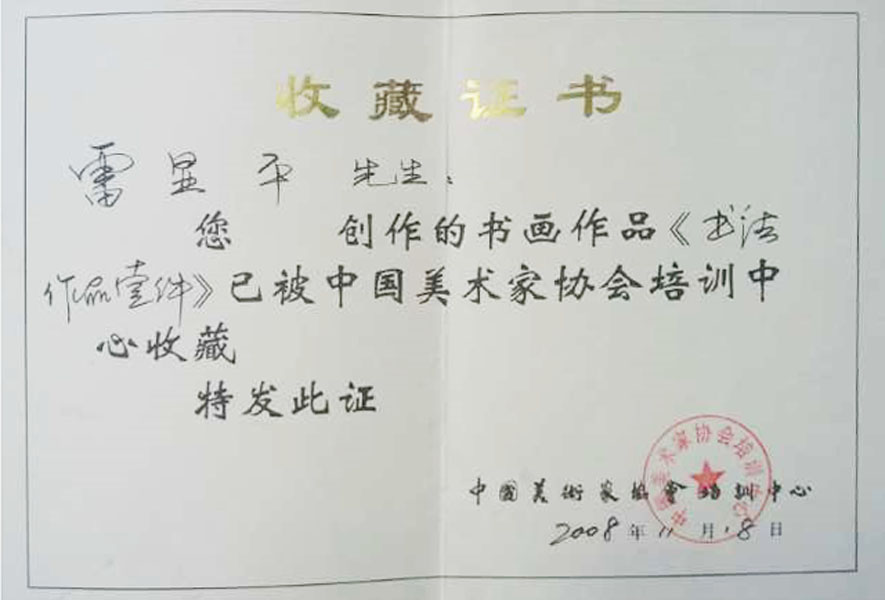 收藏证书
雷显平 先生：
您 创作的书画作品《书法
作品壹件》已被中国美术家协会培训中
心收藏
特发此证
中國美術家協會培訓中心
2008年11月18日
中国美术家协会培训中心